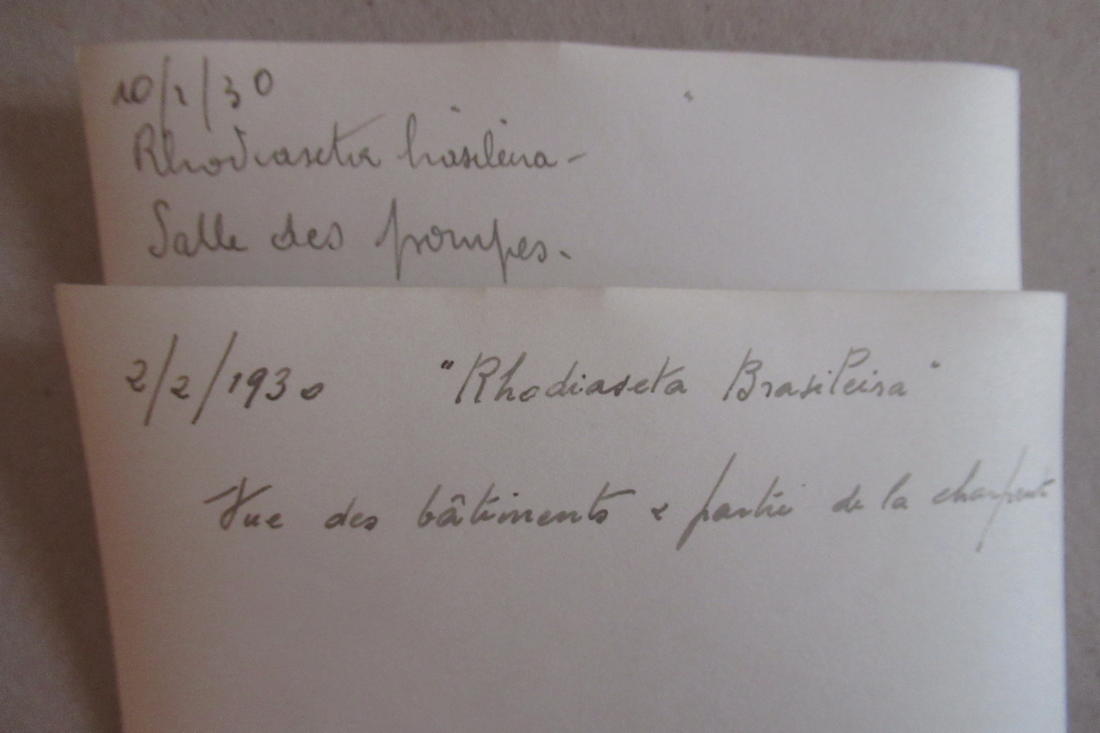 10/1/30
Rhodiaseta brasileira -
Salle des pompes.
2/2/1930 "Rhodiaseta Brasileira"
Vue des bâtiments & partie de la charpente